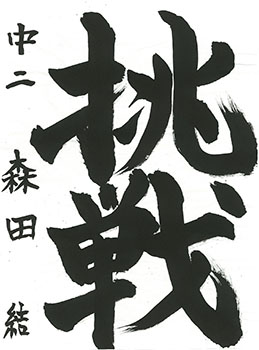 挑戦
中二 森田 結